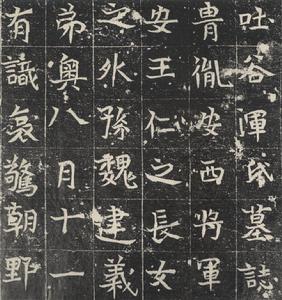 吐谷渾氏墓誌
胄胤安西將軍
安王仁之長女
之外孫魏建義
弟奧八月十一
有識哀驚朝野